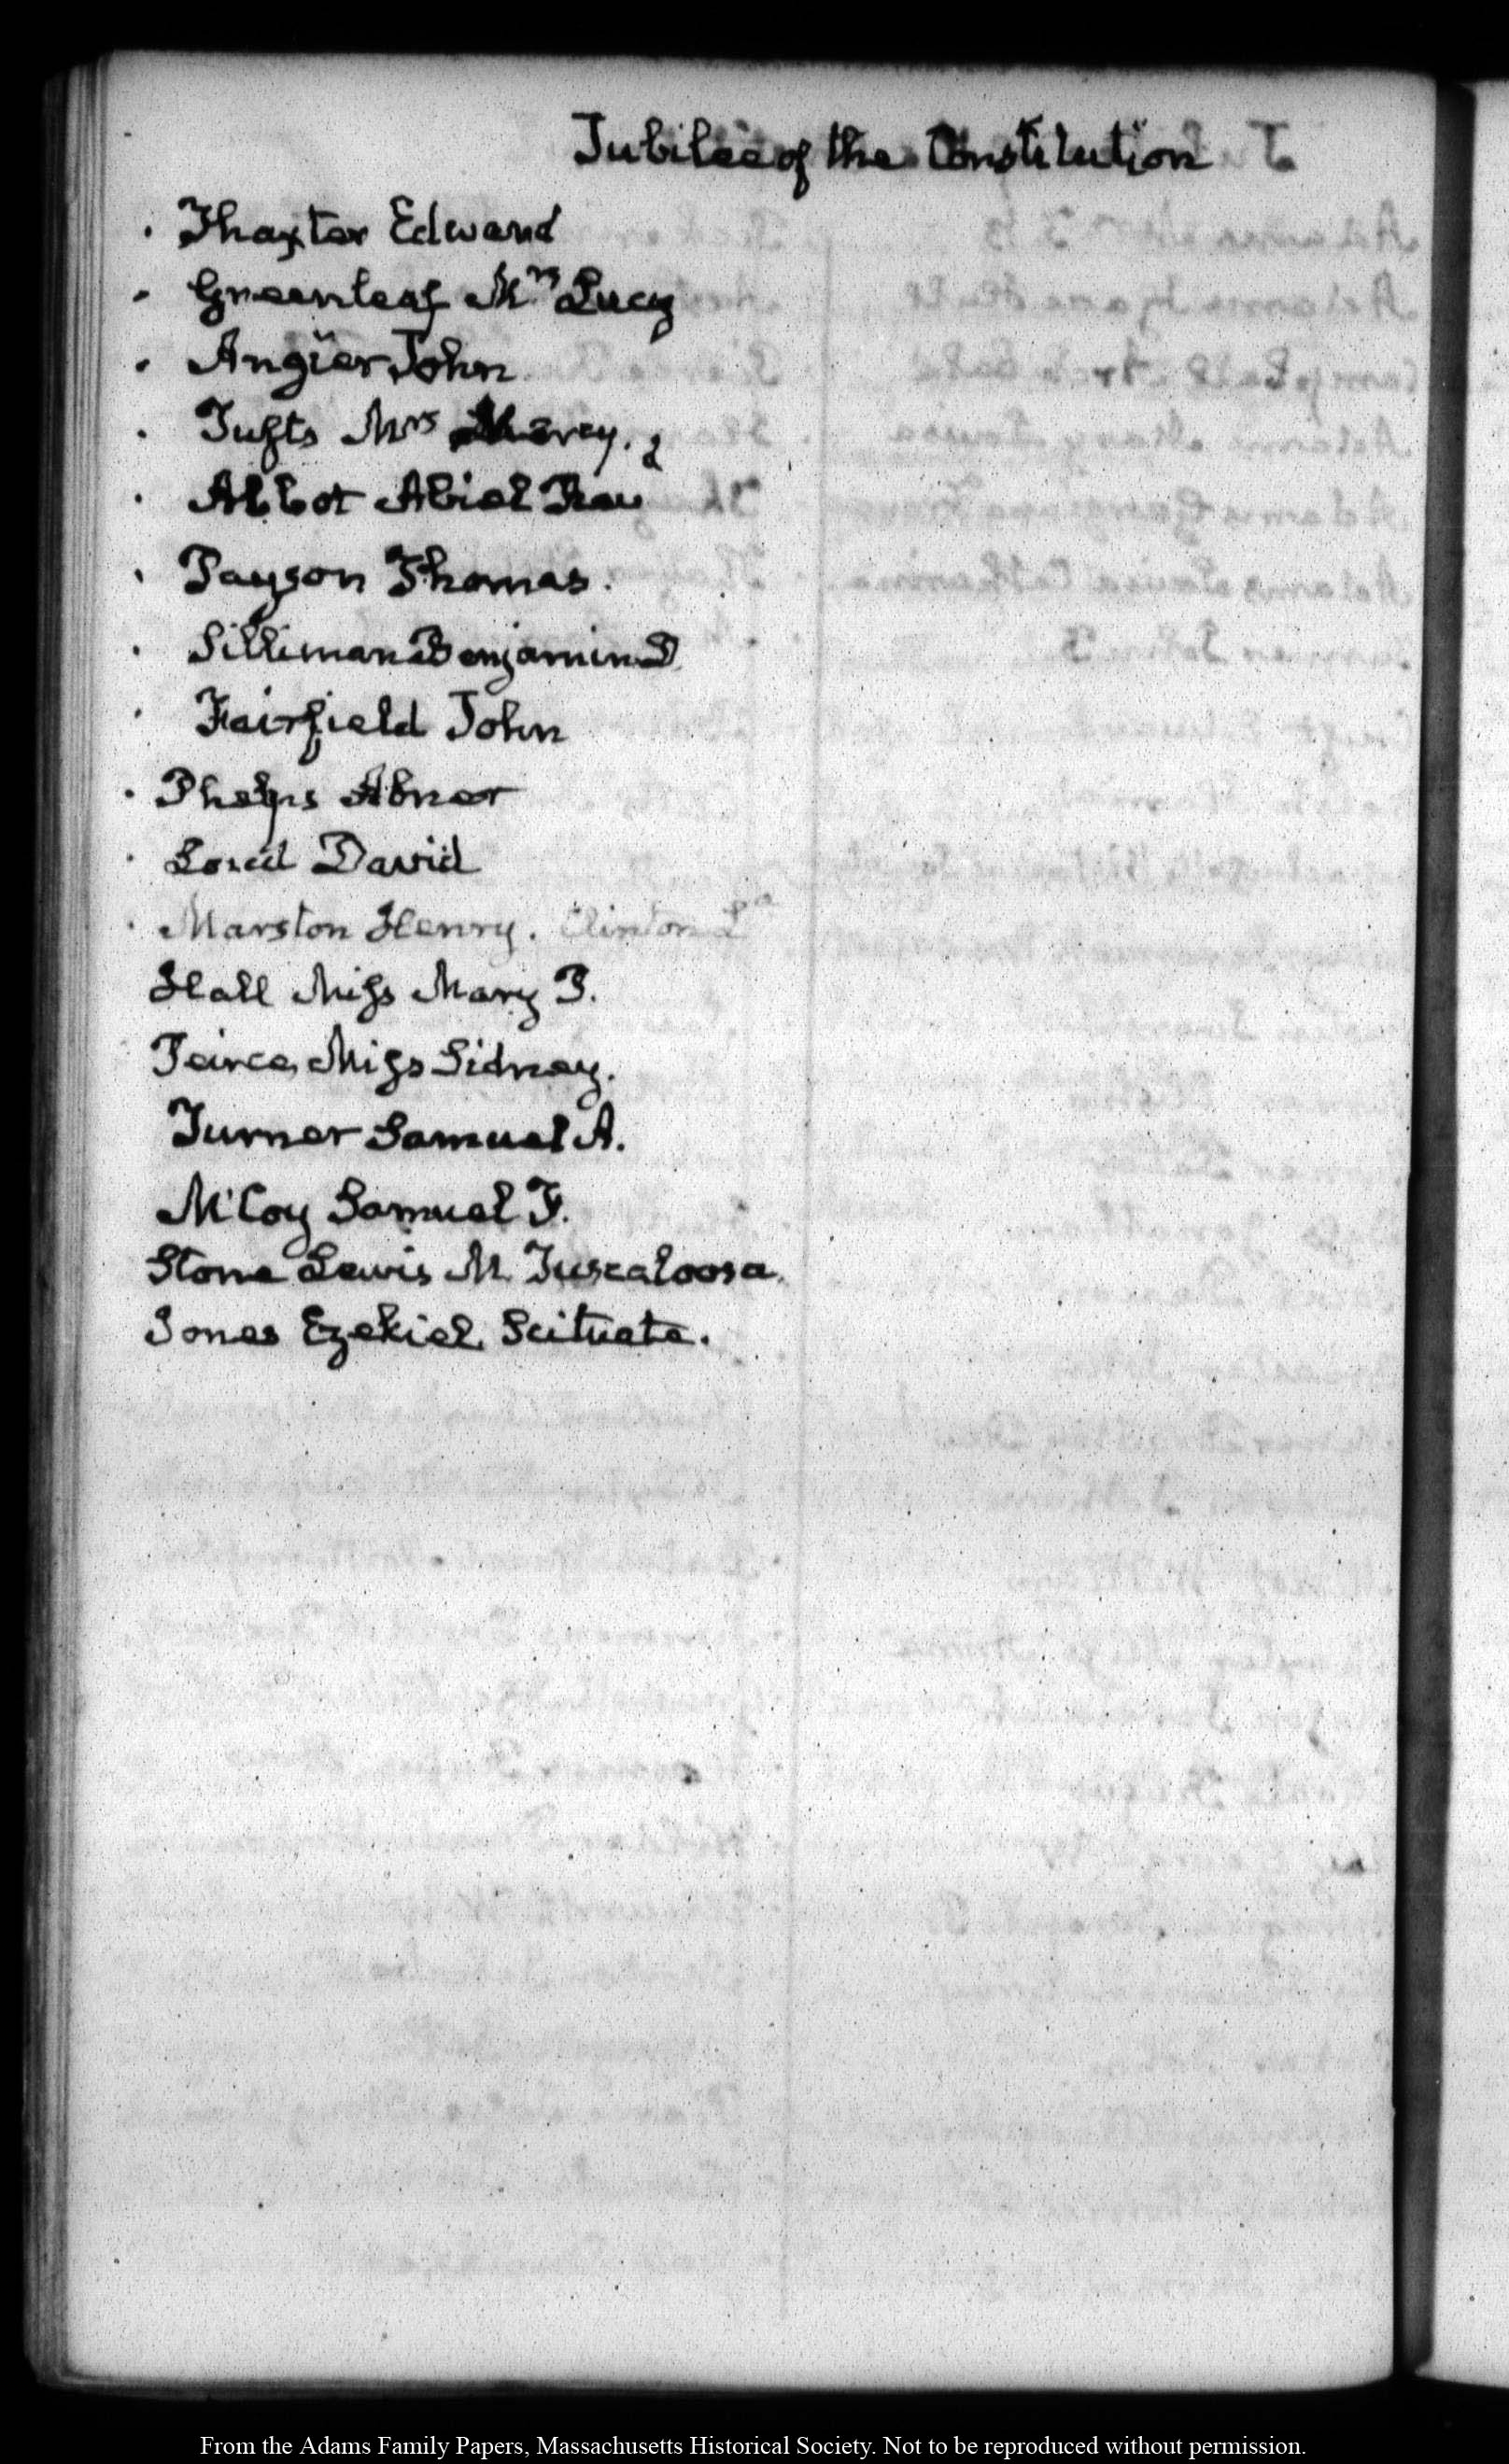 Jubilee of the Constitution
Thaxter Edward
Greenleaf Mrs Lucy
Angier John
Tufts Mrs Mercy.
Abbot Abiel Rev
Payson Thomas.
Silliman Benjamin D
Fairfield John
Phelps Abner
Loud David
Marston Henry. Clinton La
Hall Miss Mary P.
Peirce Miss Sidney.
Turner Samuel A.
McCoy Samuel F.
Stone Lewis M. Tuscaloosa.
Jones Ezekiel Scituate.
From the Adams Family Papers, Massachusetts Historical Society. Not to be reproduced without permission.